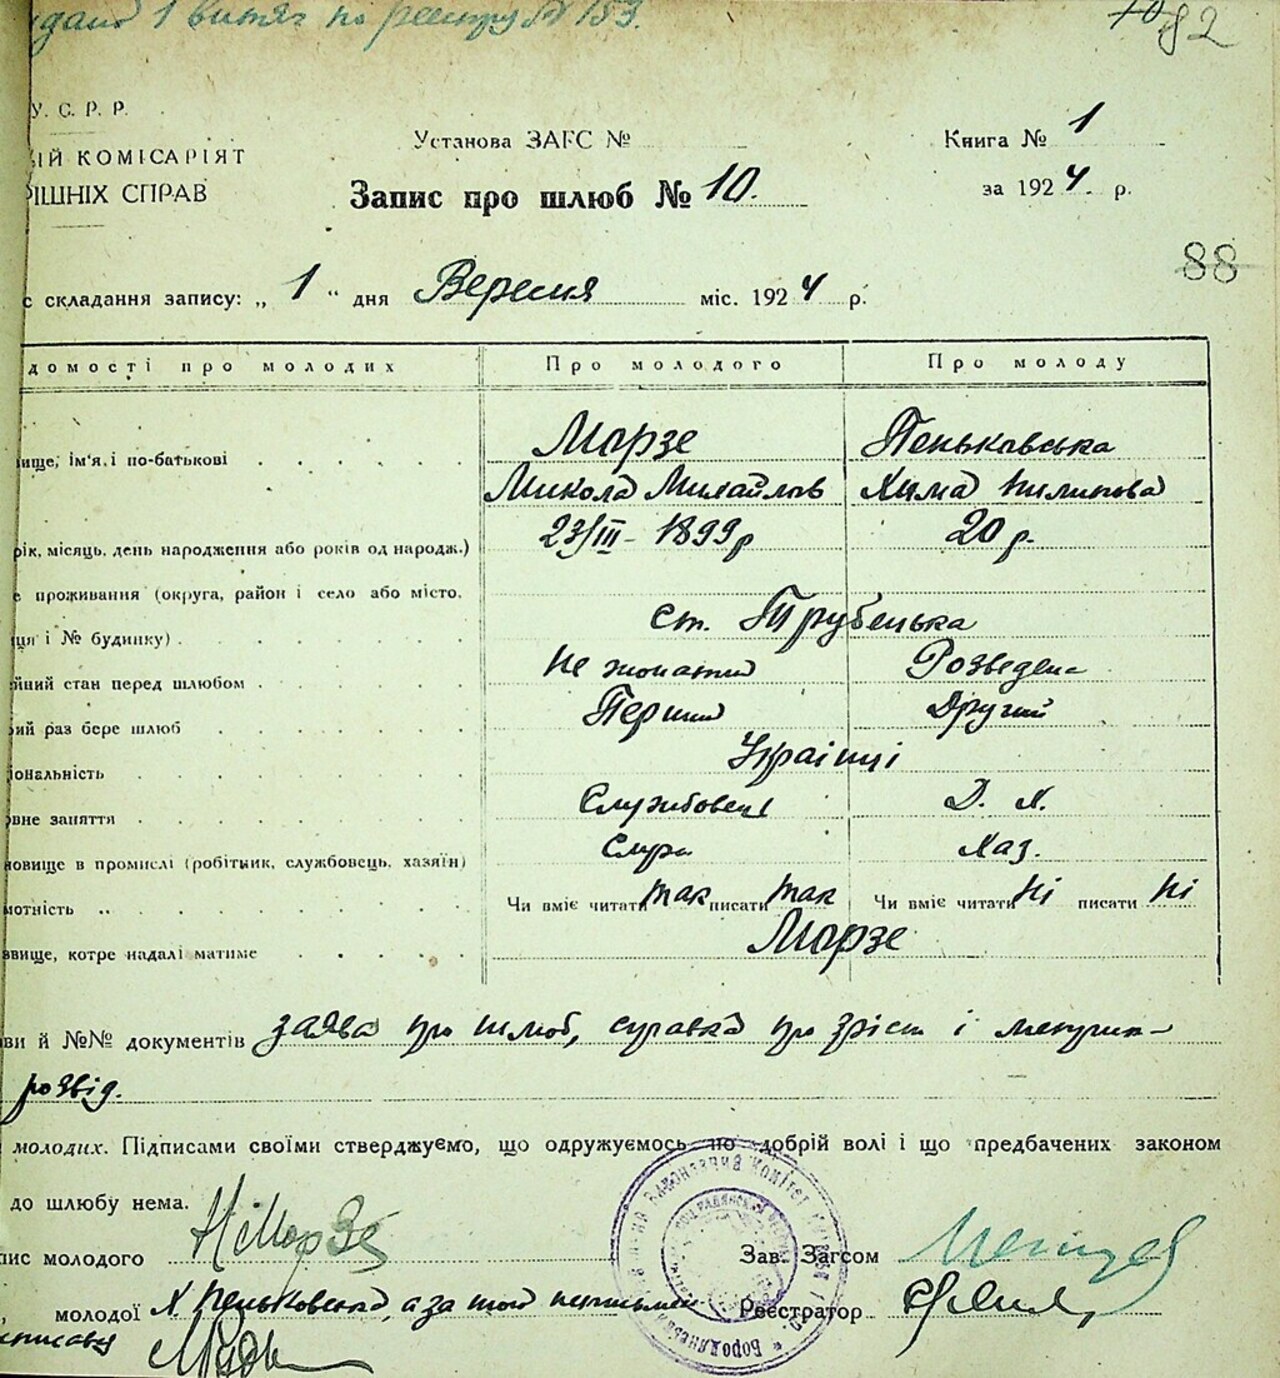 дано 1 витяг по реєстру № 153.
82
У. С. Р. Р.
Установа ЗАГС №
Книга № 1
ИЙ КОМІСАРІЯТ
РІШНІХ СПРАВ
Запис про шлюб № 10.
за 1924 р.
88
с складання запису: „ 1 “ дня Вересня міс. 1924 р.
домості про молодих Про молодого Про молоду
вище, ім'я і по-батькові Морзе Пеньковська
Микола Михайлов Хима Пилипова
рік, місяць, день народження або років од народж.) 23/III - 1899 р 20 р.
е проживання (округа, район і село або місто,
ця і № будинку) ст. Трубецька
йний стан перед шлюбом Не жонатий Розведена
рий раз бере шлюб Перший Другий
іональність Українці
овне заняття Службовець Д. Х.
новище в промислі (робітник, службовець, хазяїн) Служ Хаз.
мотність Чи вміє читати так писати так Чи вміє читати Ні писати Ні
звище, котре надалі матиме Морзе
ви й №№ документів заява про шлюб, справка про зріст і
розвід.
молодих. Підписами своїми стверджуємо, що одружуємось по добрій волі і що предбачених законом
до шлюбу нема.
пис молодого НМорзе Зав. Загсом
молодої Х. Пеньковська, а за неї неписьмен Реєстратор